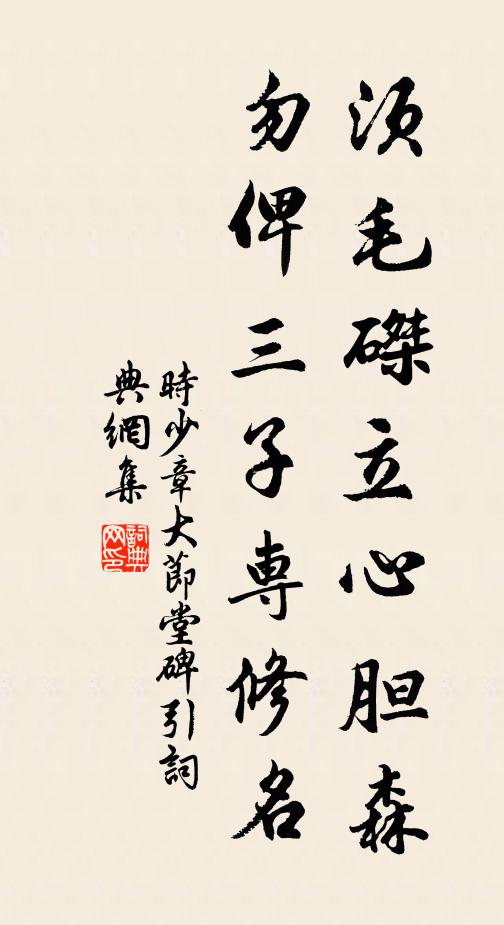 须毛磔立心胆森
勿俾三子専修名
時少章大節堂碑引詞
典網集
詞典网印